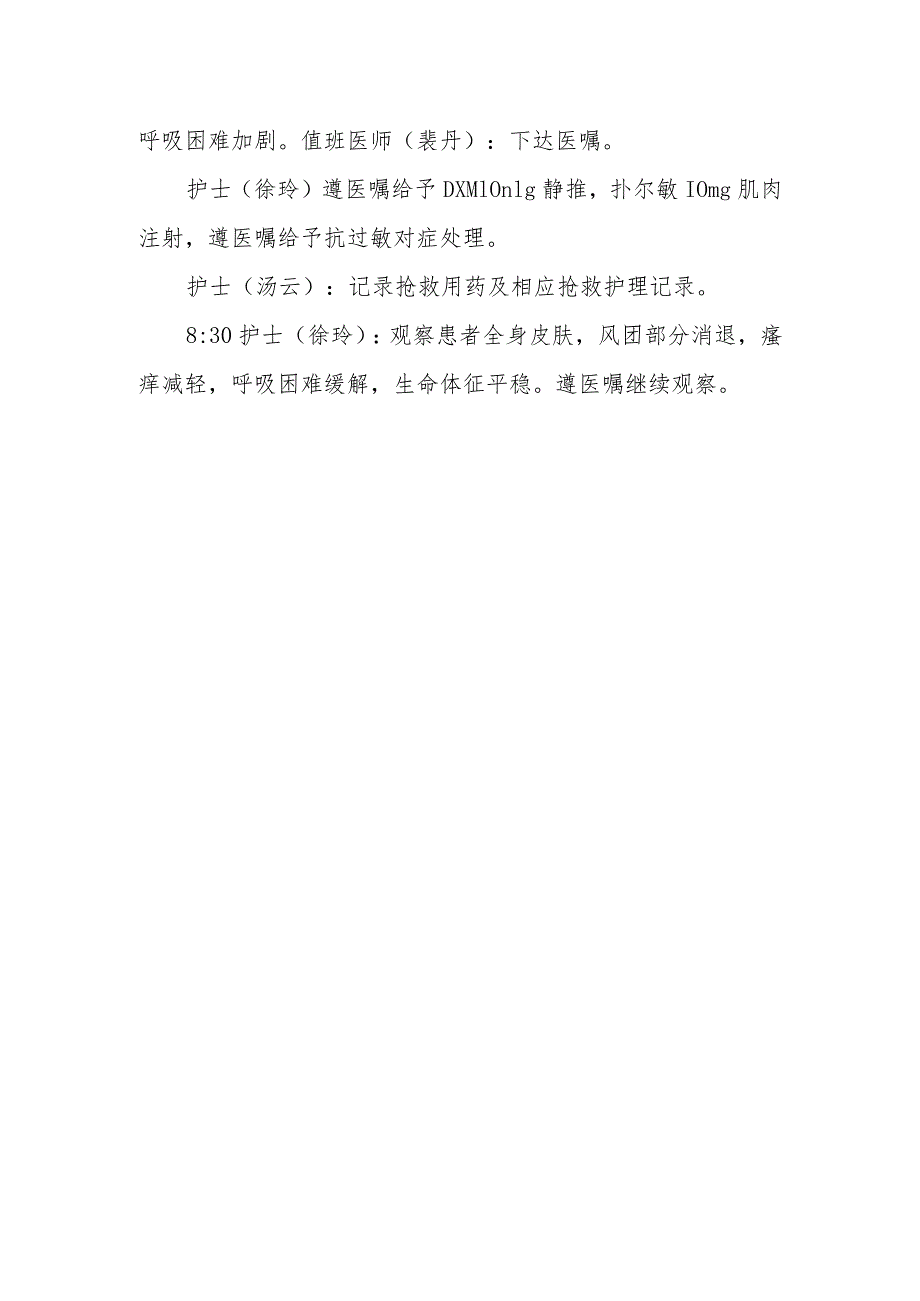 呼吸困难加剧。值班医师（裴丹）：下达医嘱。
护士（徐玲）遵医嘱给予DXMlOnlg静推，扑尔敏IOmg肌肉
注射，遵医嘱给予抗过敏对症处理。
护士（汤云）：记录抢救用药及相应抢救护理记录。
8:30护士（徐玲）：观察患者全身皮肤，风团部分消退，瘙
痒减轻，呼吸困难缓解，生命体征平稳。遵医嘱继续观察。